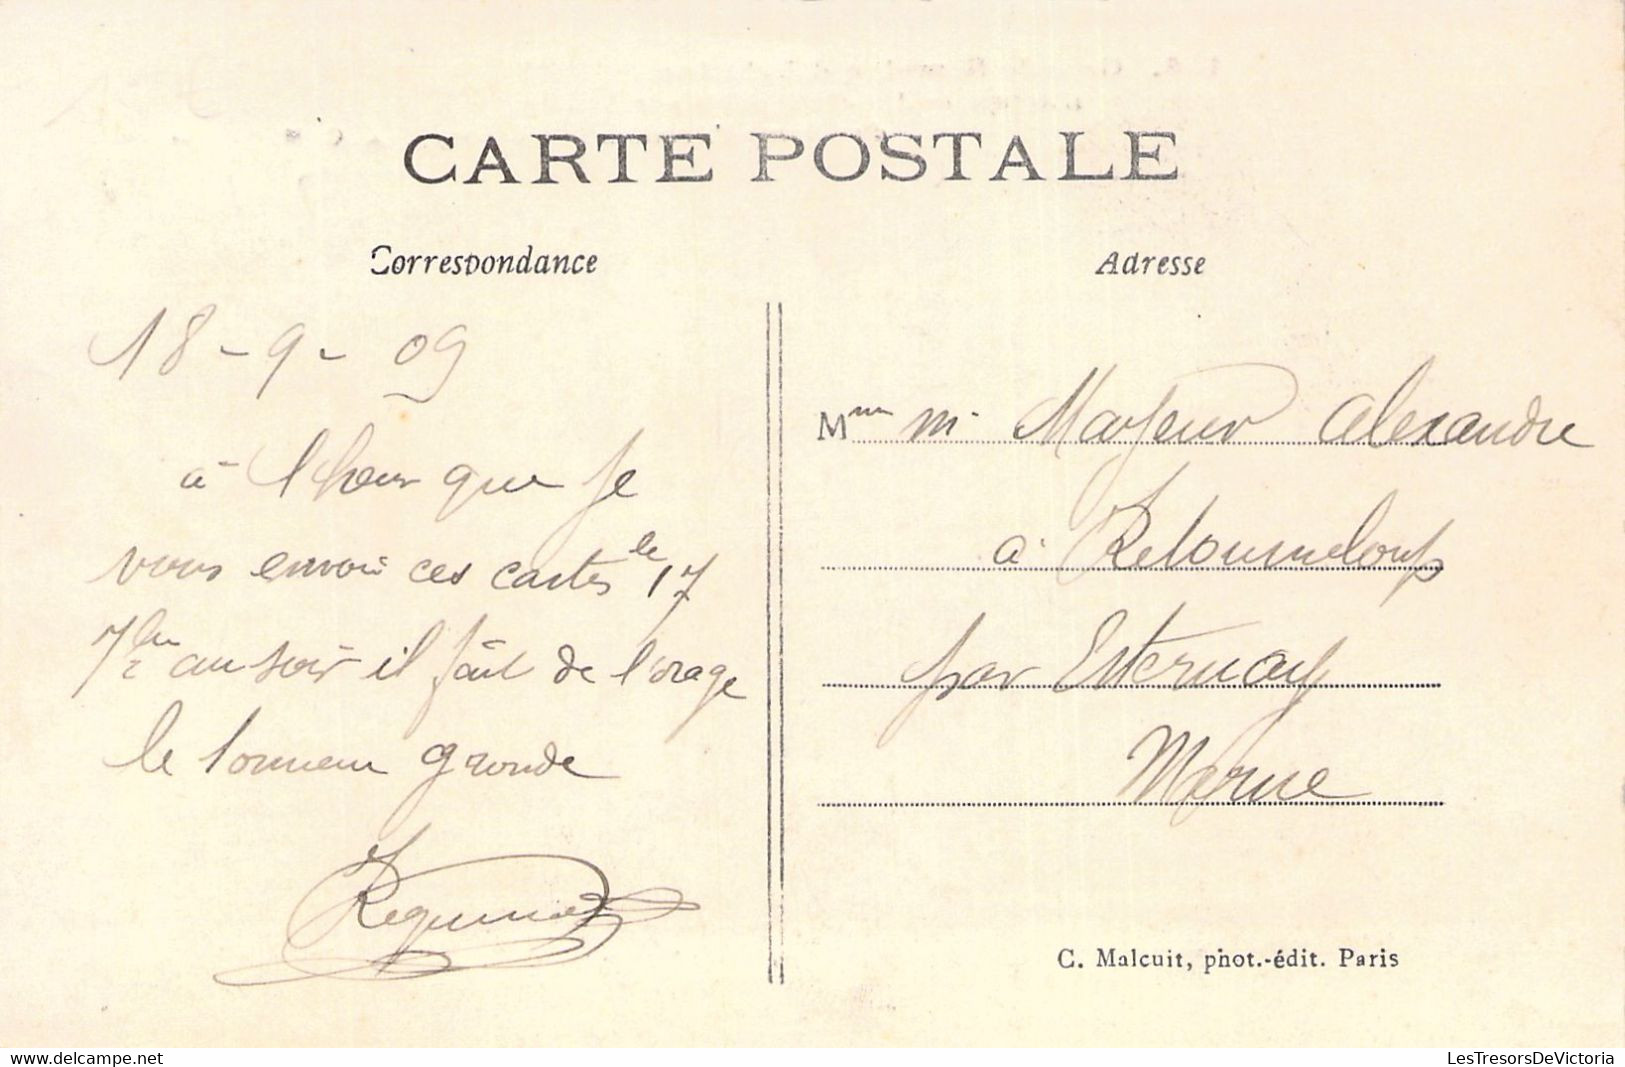 CARTE POSTALE
Correspondance
18-9-09
à l heur que je
vous envoi ces cartes le 17
7bre au soir il fait de l'orage
le tonneur gronde
Adresse
M. Mayeur Alexandre
à Retourneloup
par Esternay
Marne
C. Malcuit, phot.-édit. Paris
delcampe.net
LesTresorsDeVictoria